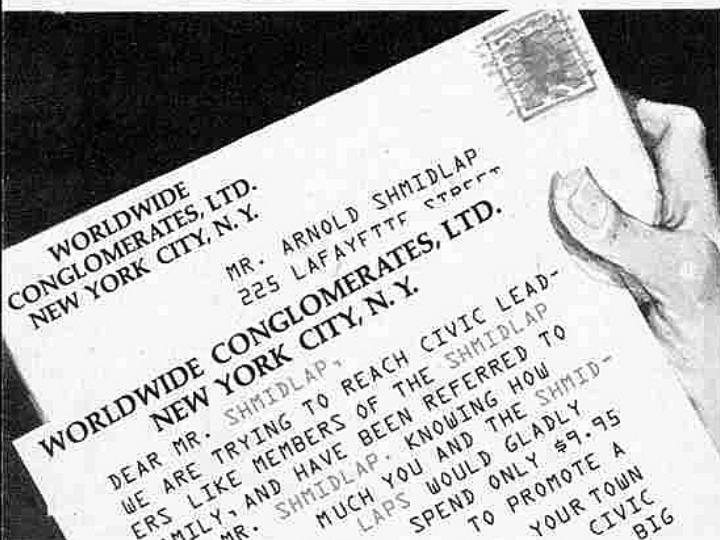 WORLDWIDE
CONGLOMERATES, LTD.
NEW YORK CITY, N.Y.
MR. ARNOLD SHMIDLAP
225 LAFAYETTE STREET
WORLDWIDE CONGLOMERATES, LTD.
NEW YORK CITY, N.Y.
DEAR MR. SHMIDLAP,
WE ARE TRYING TO REACH CIVIC LEAD-
ERS LIKE MEMBERS OF THE SHMIDLAP
AMILY, AND HAVE BEEN REFERRED TO
MR. SHMIDLAP. KNOWING HOW
MUCH YOU AND THE SHMID-
LAPS WOULD GLADLY
SPEND ONLY $9.95
TO PROMOTE A
YOUR TOWN
CIVIC
BIG